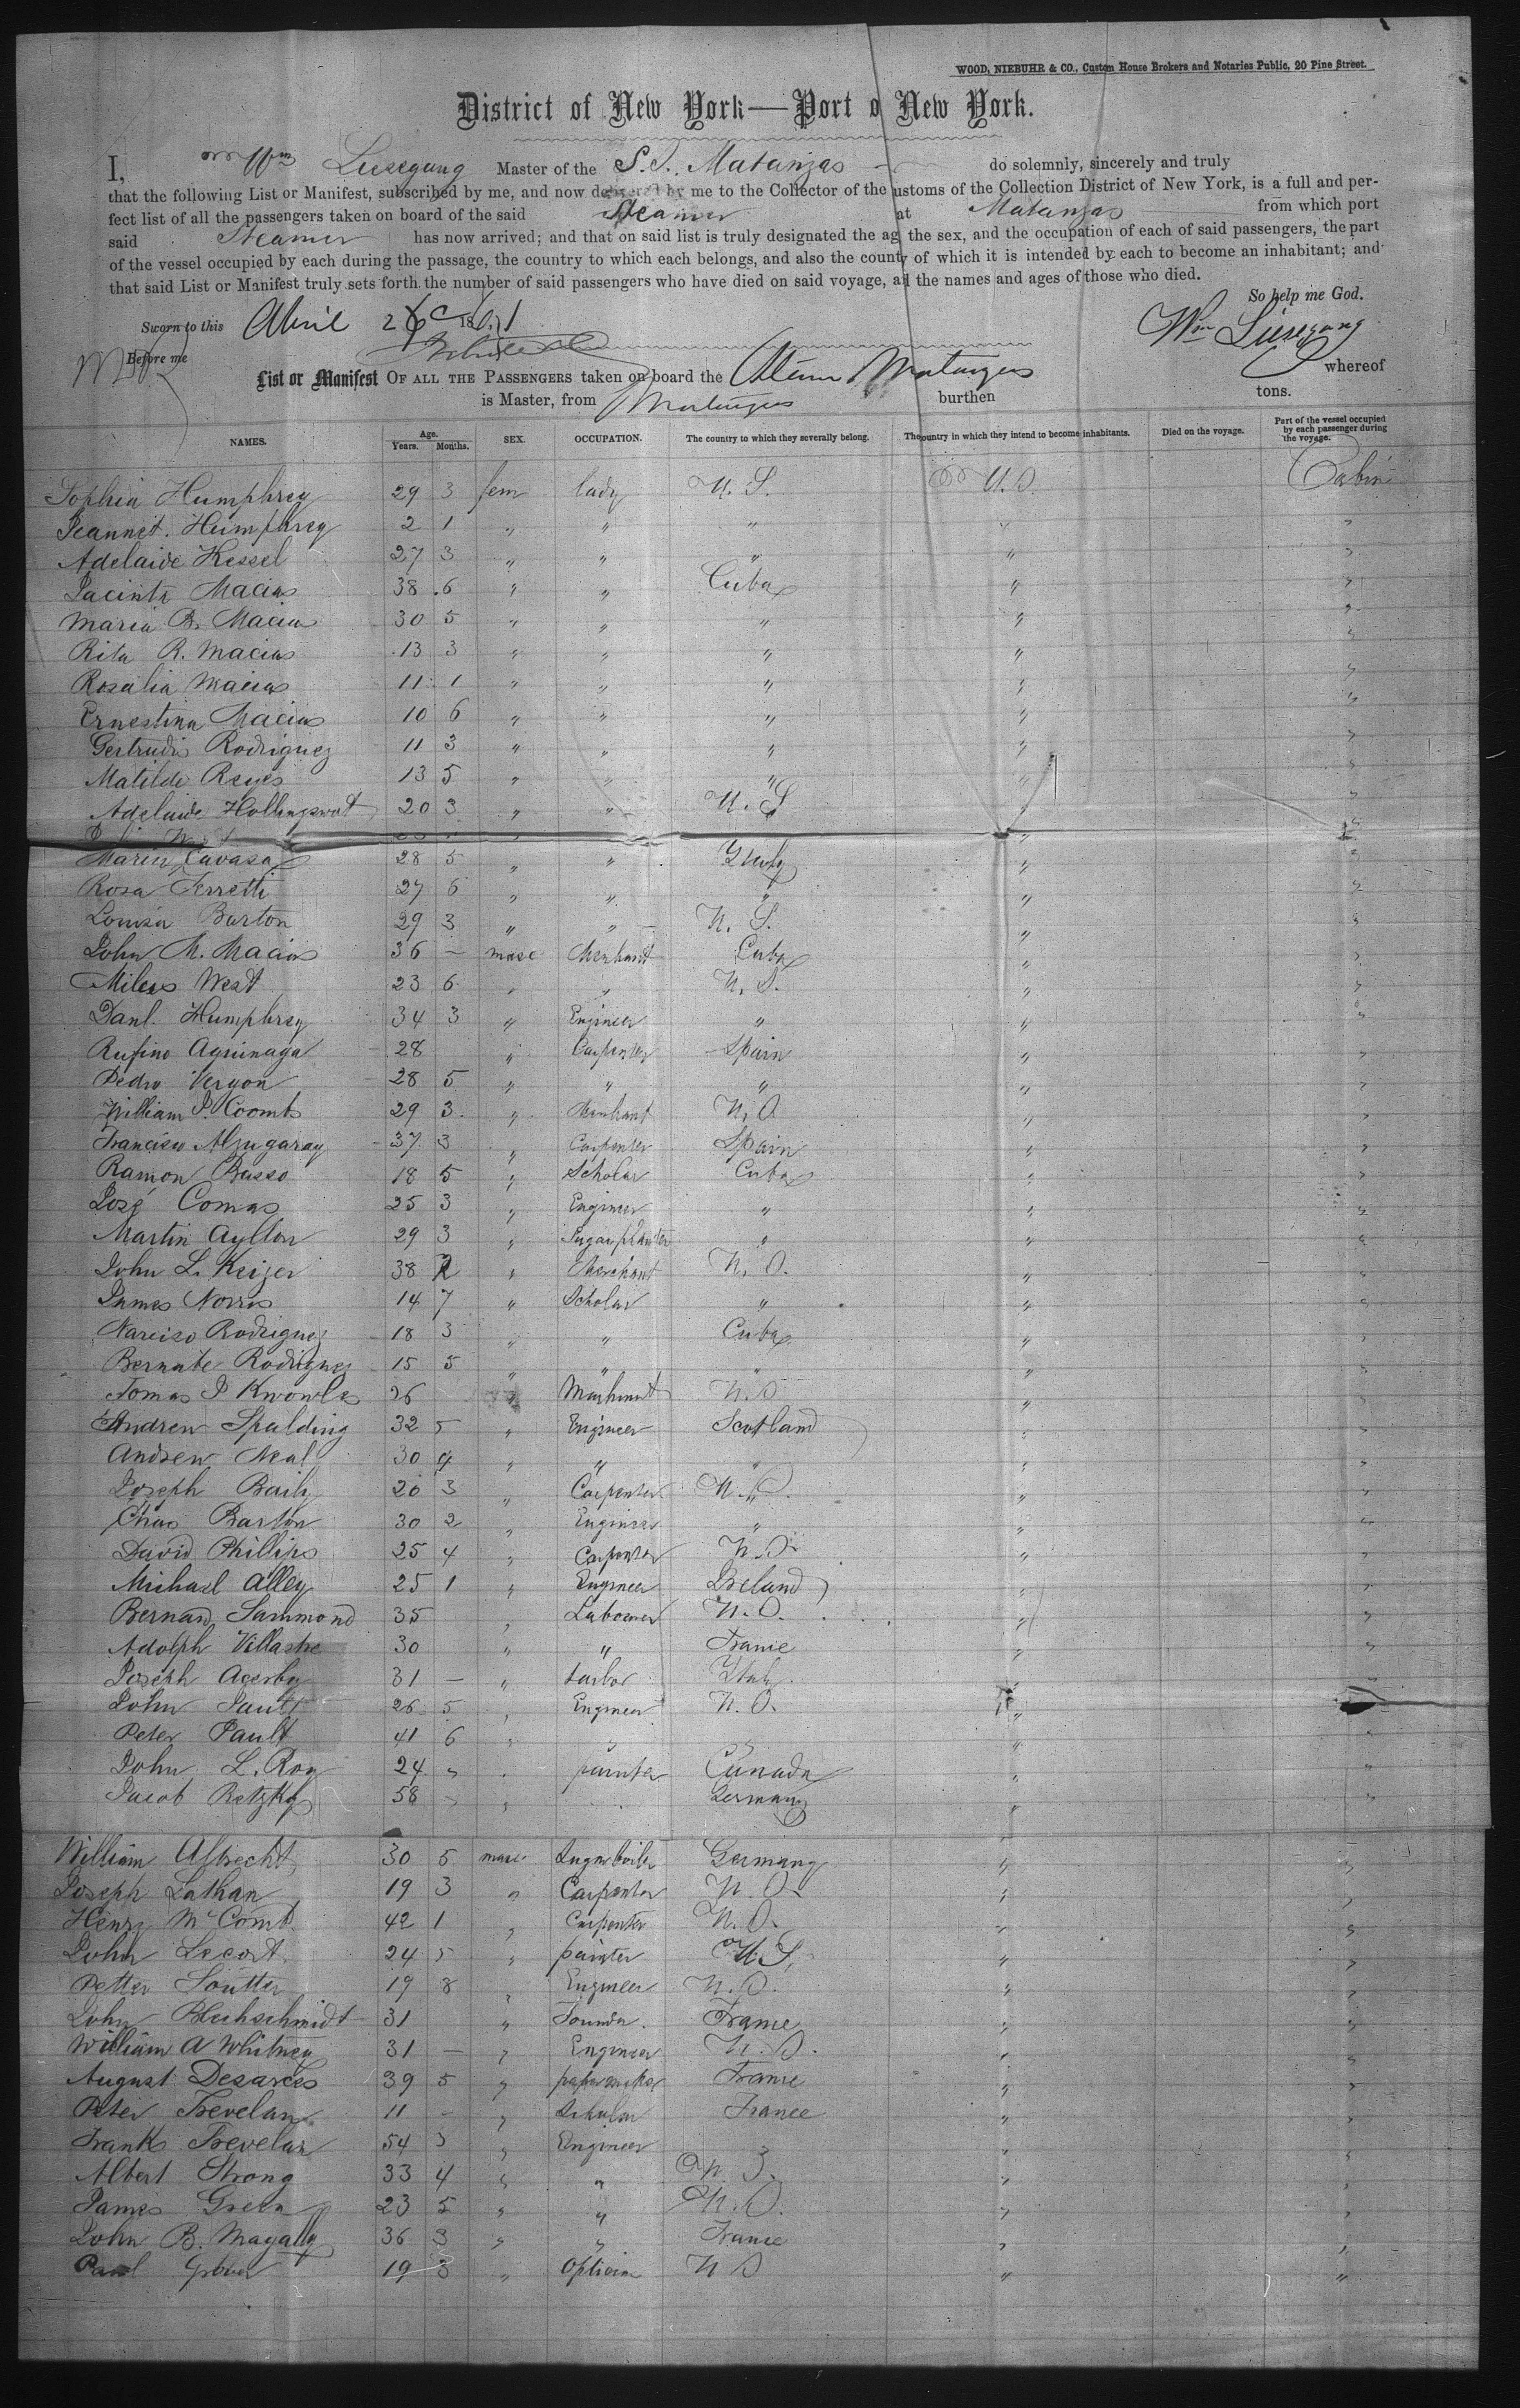 WOOD, NIEBUHR & CO., Custom House Brokers and Notaries Public, 20 Pine Street.
District of New York—Port o New York.
I, Wm Liesegang Master of the S.S. Matanzas do solemnly, sincerely and truly
that the following List or Manifest, subscribed by me, and now delivered by me to the Collector of the ustoms of the Collection District of New York, is a full and per-
fect list of all the passengers taken on board of the said Steamer at Matanzas from which port
said Steamer has now arrived; and that on said list is truly designated the ag the sex, and the occupation of each of said passengers, the part
of the vessel occupied by each during the passage, the country to which each belongs, and also the county of which it is intended by each to become an inhabitant; and
that said List or Manifest truly sets forth the number of said passengers who have died on said voyage, ad the names and ages of those who died.
So help me God.
Sworn to this April 26 18 1 Wm Liesegang
Before me
List or Manifest OF ALL THE PASSENGERS taken on board the Steamer Matanzas whereof
is Master, from Matanzas burthen tons.
NAMES. Age. Years. Months. SEX. OCCUPATION. The country to which they severally belong. The country in which they intend to become inhabitants. Died on the voyage. Part of the vessel occupied by each passenger during the voyage.
Sophia Humphrey 29 3 fem lady U. S. U.S. Cabin
Jeannet. Humphrey 2 1 " " " " "
Adelaide Kessel 27 3 " " " " "
Jacinta Macias 38 6 " " Cuba " "
Maria B. Macias 30 5 " " " " "
Rita R. Macias 13 3 " " " " "
Rosalia Macias 11 1 " " " " "
Ernestina Macias 10 6 " " " " "
Gertrudis Rodriguez 11 3 " " " " "
Matilde Reyes 13 5 " " " " "
Adelaide Hollingswort 20 3 " " U. S " "
Maria Cavasa 28 5 " " Italy " "
Rosa Ferretti 27 6 " " " " "
Louisa Barton 29 3 " " U. S. " "
John M. Macias 36 — masc Merchant Cuba " "
Miles West 23 6 " " U. S. " "
Danl. Humphrey 34 3 " Engineer " " "
Rufino Agrinaga 28 " Carpenter Spain " "
Pedro Vergon 28 5 " " " " "
William J. Coombs 29 3 " Merchant U. S " "
Francisco Alzugaray 37 3 " Carpenter Spain " "
Ramon Basso 18 5 " Scholar Cuba " "
José Comas 25 3 " Engineer " " "
Martin Ayllon 29 3 " Sugar planter " " "
John L. Keizer 38 2 " Merchant U. S. " "
James Norris 14 7 " Scholar " " "
Narciso Rodriguez 18 3 " " Cuba " "
Bernabe Rodriguez 15 5 " " " " "
Tomas J Knowles 26 " Mechant U. S " "
Andrew Spalding 32 5 " Engineer Scotland " "
Andrew Neal 30 4 " " " " "
Joseph Baily 20 3 " Carpenter U. S. " "
Chas Barton 30 2 " Engineer " " "
David Phillips 25 4 " Carpenter U. S. " "
Michael Alley 25 1 " Engineer Ireland " "
Bernard Sammond 35 " Laborer U. S. " "
Adolph Villastre 30 " " France " "
Joseph Acerby 31 — " Italy " "
John Pault 26 5 " Engineer U. S. " "
Peter Pault 41 6 " " " " "
John L. Roy 24 " " painter Canada " "
Jacob Retzky 58 " " Germany " "
William Albrecht 30 5 masc Sugar boiler Germany " "
Joseph Lathan 19 3 " Carpenter U. S. " "
Henry McComb 42 1 " Carpenter U. S. " "
John Lecort 24 5 " painter U. S. " "
Petter Soutter 19 8 " Engineer U. S. " "
John Blechschmidt 31 " Founder. France " "
William A Whitney 31 — " Engineer U. S. " "
August Desarces 39 5 " papermaker France " "
Peter Trevelan 11 — " Scholar France " "
Frank Trevelan 54 3 " Engineer " " "
Albert Strong 33 4 " " U. S. " "
James Green 23 5 " " U. S. " "
John B. Magally 36 3 " " France " "
Paul Grover 19 3 " Optician U S " "